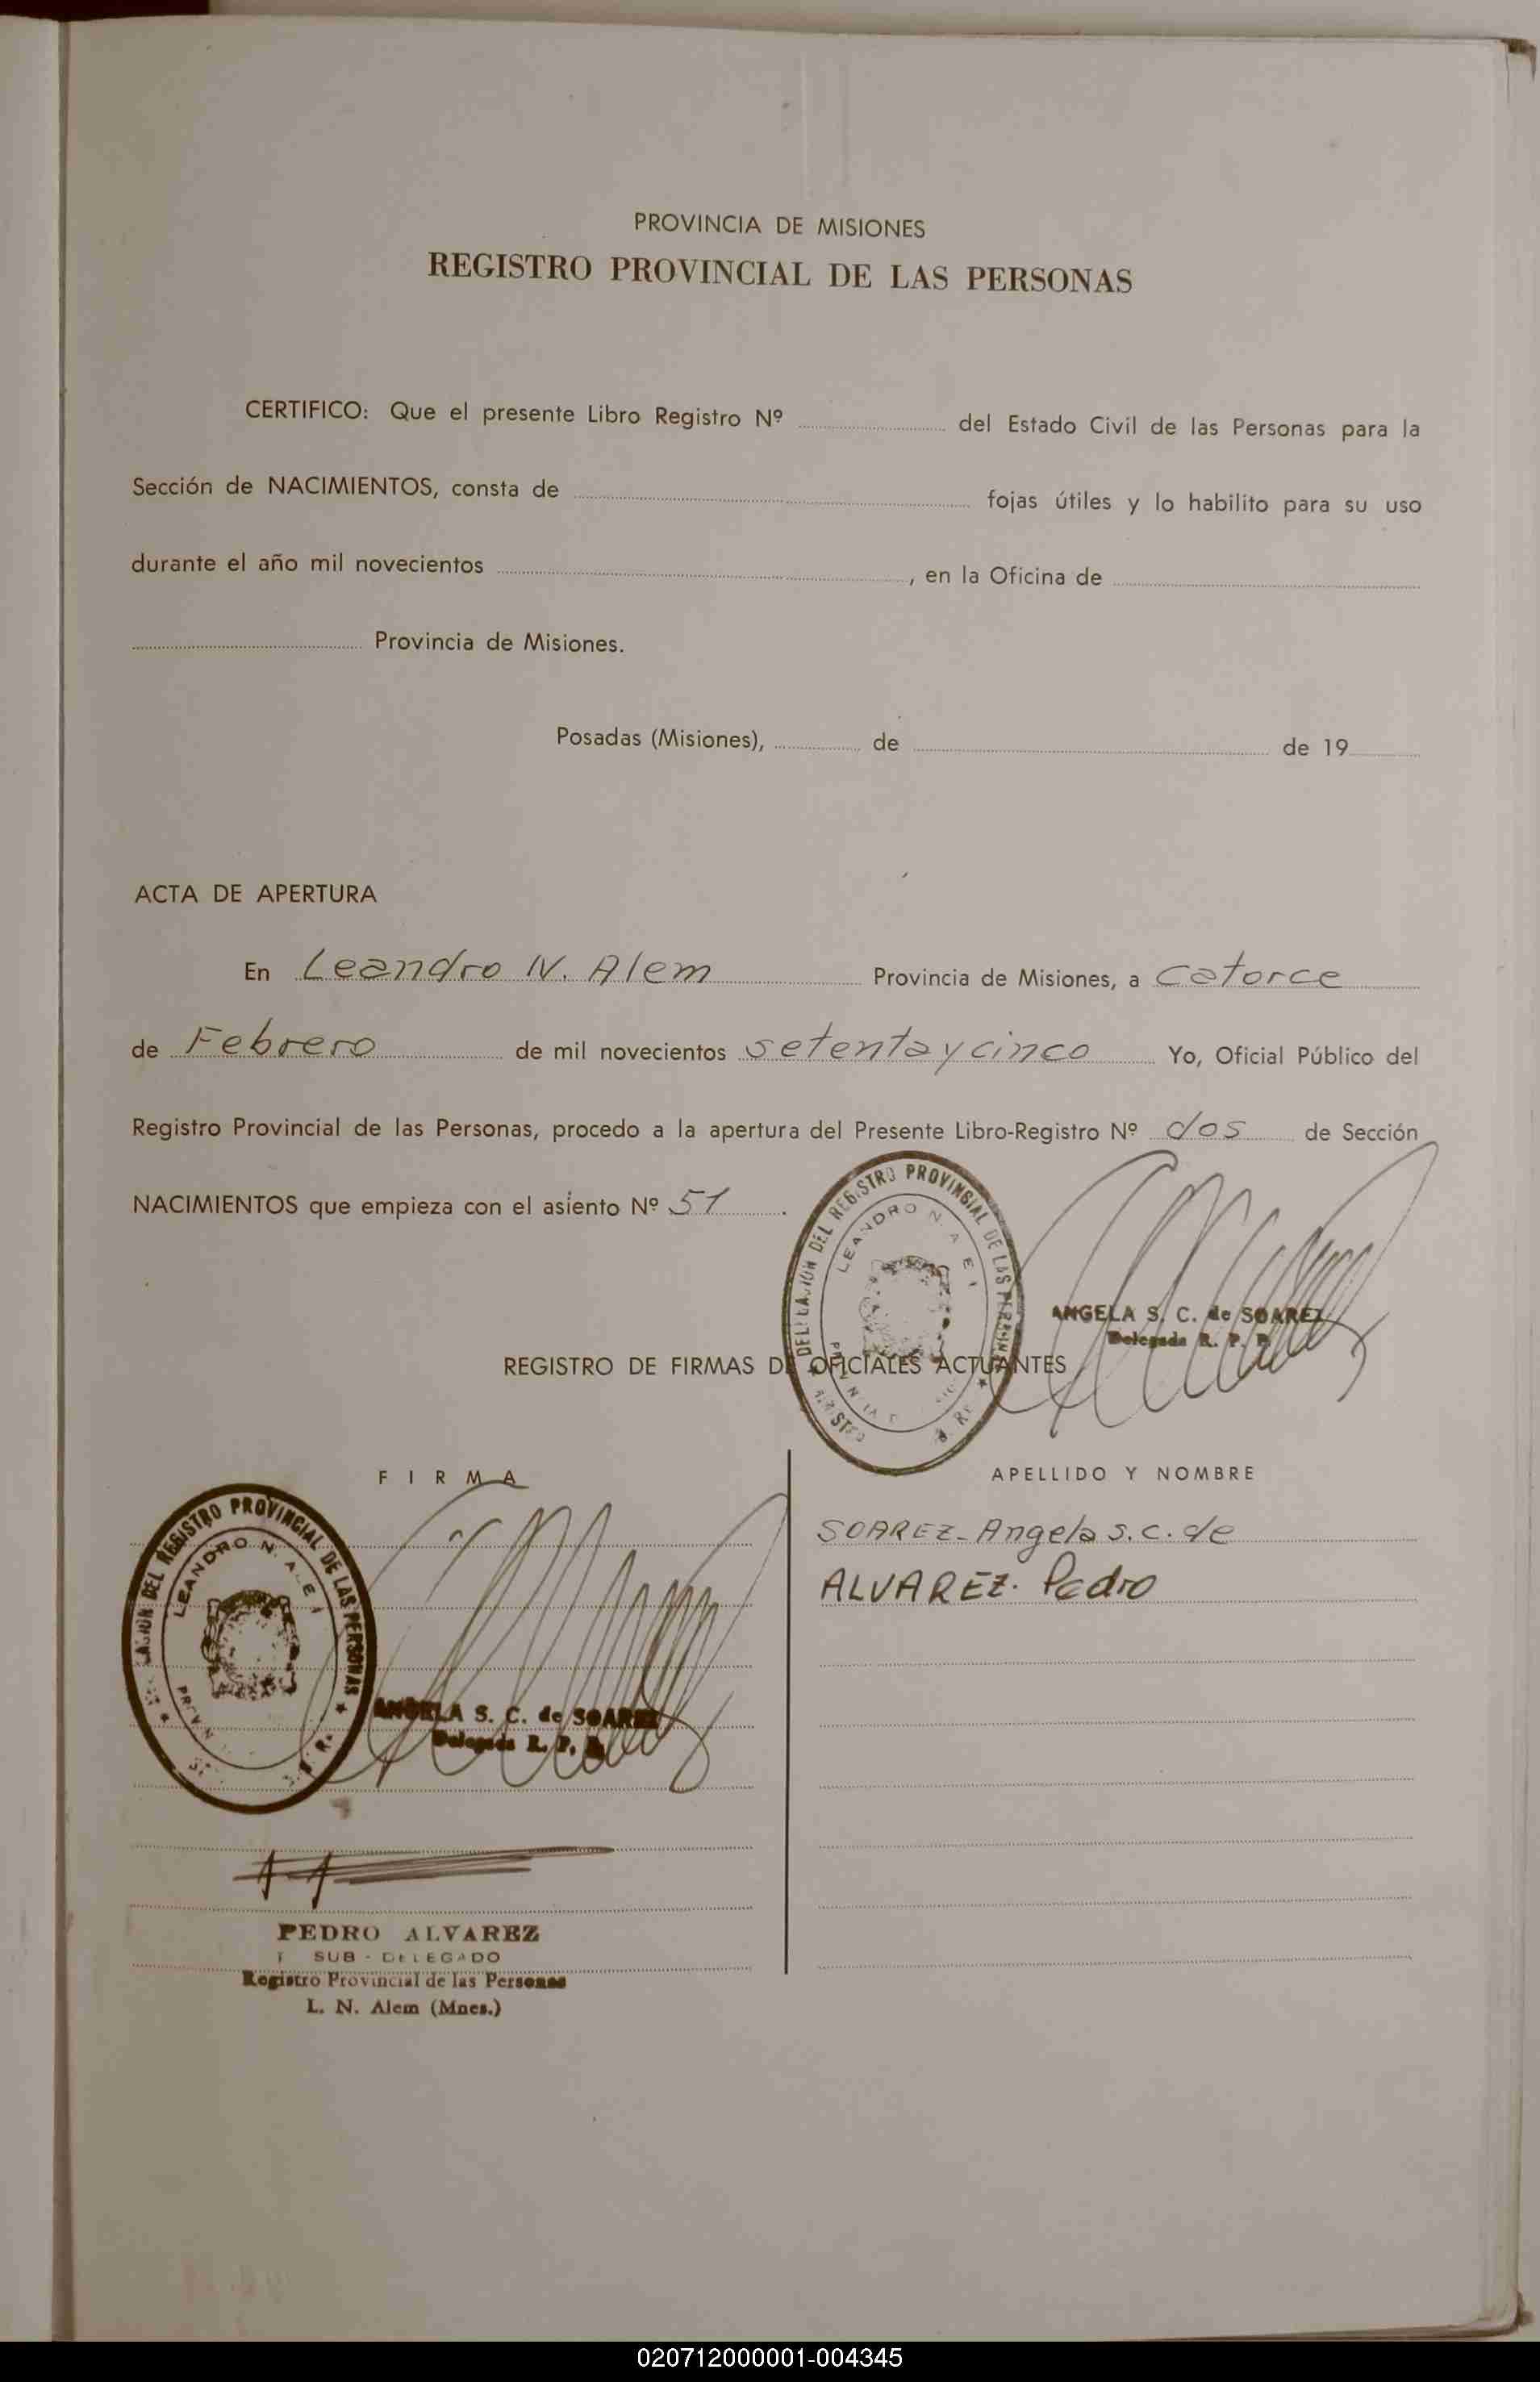 PROVINCIA DE MISIONES
REGISTRO PROVINCIAL DE LAS PERSONAS
CERTIFICO: Que el presente Libro Registro Nº del Estado Civil de las Personas para la
Sección de NACIMIENTOS, consta de fojas útiles y lo habilito para su uso
durante el año mil novecientos , en la Oficina de
Provincia de Misiones.
Posadas (Misiones), de de 19
ACTA DE APERTURA
En Leandro N. Alem Provincia de Misiones, a catorce
de Febrero de mil novecientos setenta y cinco Yo, Oficial Público del
Registro Provincial de las Personas, procedo a la apertura del Presente Libro-Registro Nº dos de Sección
NACIMIENTOS que empieza con el asiento Nº 51.
DEL REGISTRO PROVINCIAL DE LAS
LEANDRO N.
ANGELA S. C. de SOAREZ
Delegada R. P. P.
REGISTRO DE FIRMAS DE OFICIALES ACTUANTES
FIRMA
APELLIDO Y NOMBRE
SOAREZ- Angela S. C. de
ALVAREZ. Pedro
DEL REGISTRO PROVINCIAL DE LAS PERSONAS
LEANDRO N.
ANGELA S. C. de SOAREZ
Delegada R. P. P.
PEDRO ALVAREZ
SUB - DELEGADO
Registro Provincial de las Personas
L. N. Alem (Mnes.)
020712000001-004345